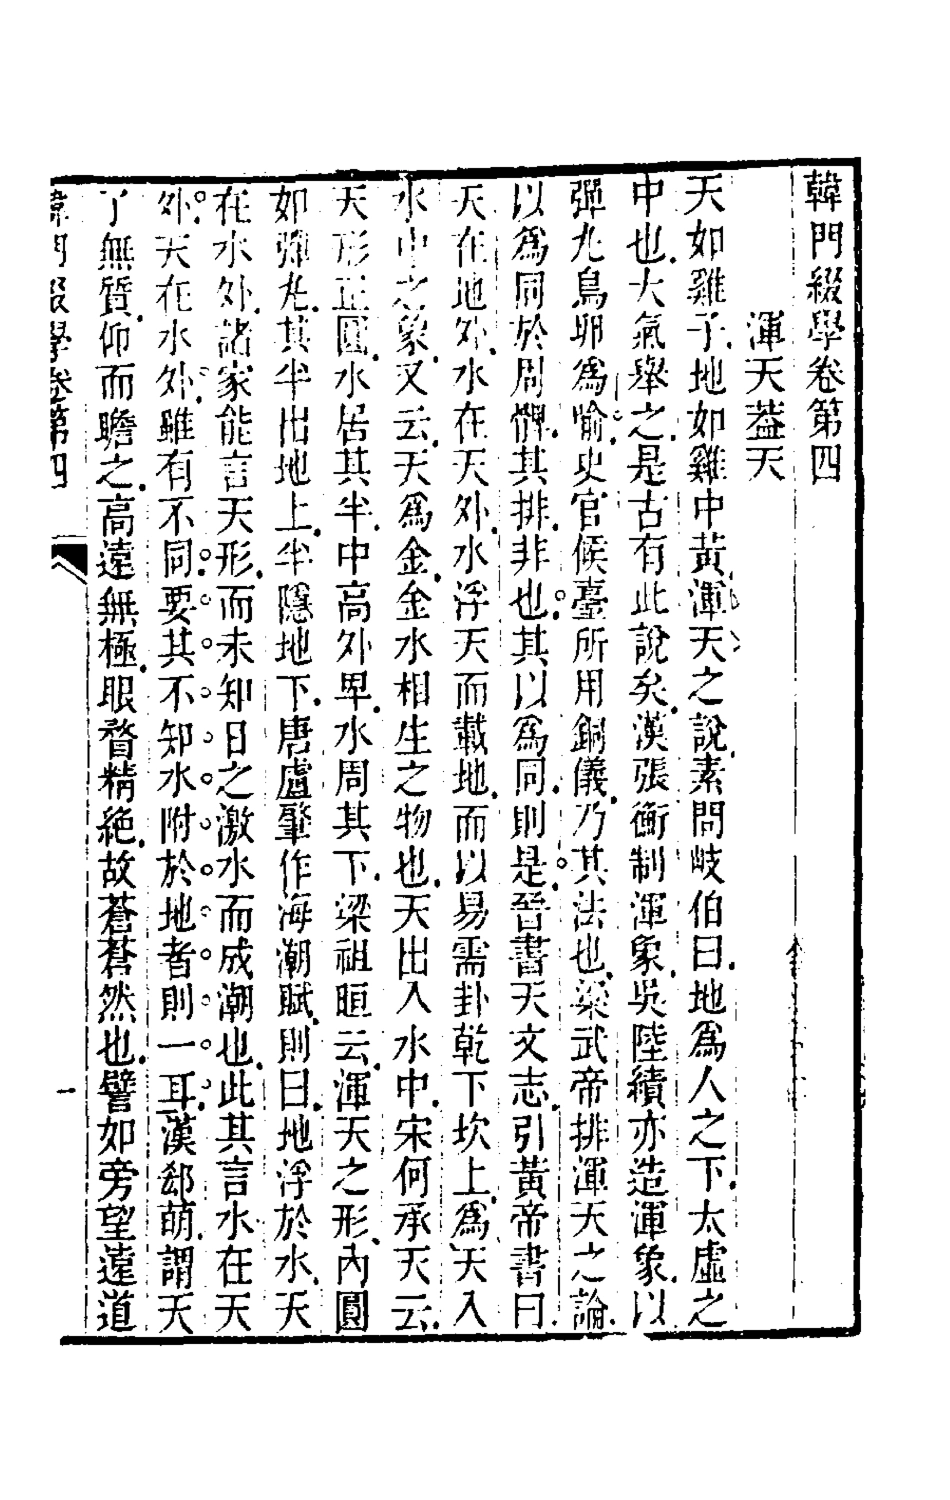 韓門綴學卷第四
渾天蓋天
天如雞子地如雞中黃渾天之說素問岐伯曰地爲人之下太虛之
中也大氣舉之是古有此說矣漢張衡制渾象吳陸績亦造渾象以
彈丸鳥卵爲喻史官候臺所用銅儀乃其法也梁武帝排渾天之論
以爲同於周髀其排非也其以爲同則是晉書天文志引黃帝書曰
天在地外水在天外水浮天而載地而以易需卦乾下坎上爲天入
水中之象又云天爲金金水相生之物也天出入水中宋何承天云
天形正圓水居其半中高外卑水周其下梁祖暅云渾天之形內圓
如彈丸其半出地上半隱地下唐盧肇作海潮賦則曰地浮於水天
在水外諸家能言天形而未知日之激水而成潮也此其言水在天
外天在水外雖有不同要其不知水附於地者則一耳漢郄萌謂天
了無質仰而瞻之高遠無極眼瞀精絶故蒼蒼然也譬如旁望遠道
韓門綴學卷第四
一